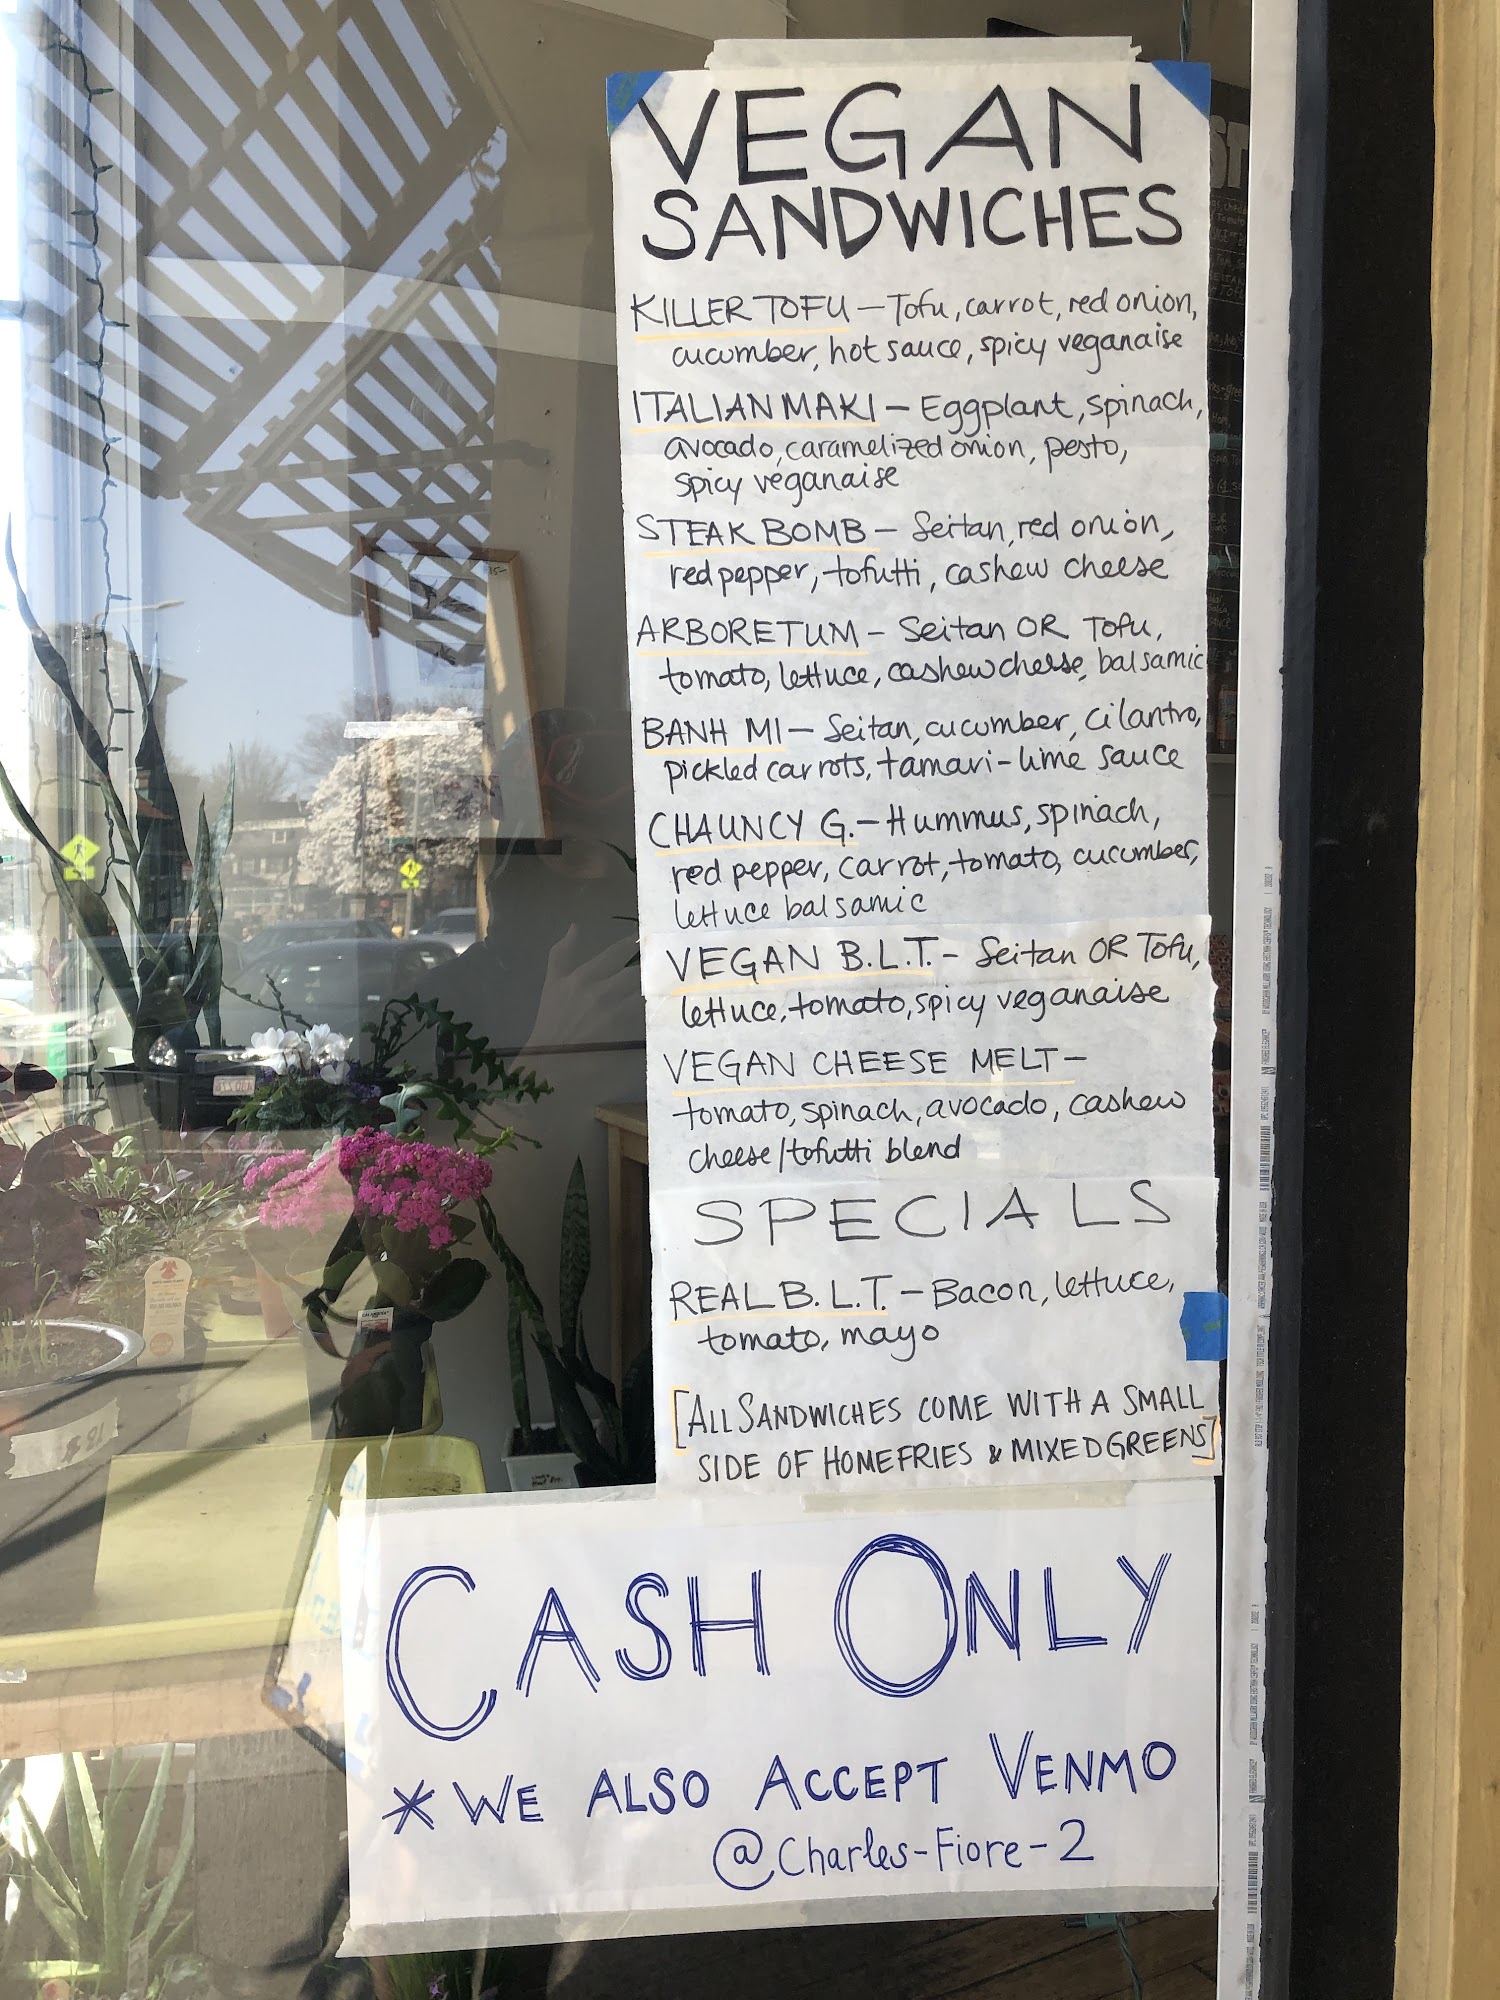 VEGAN
SANDWICHES
KILLER TOFU — Tofu, carrot, red onion,
cucumber, hot sauce, spicy veganaise
ITALIAN MAKI — Eggplant, spinach,
avocado, caramelized onion, pesto,
spicy veganaise
STEAK BOMB — Seitan, red onion,
red pepper, tofutti, cashew cheese
ARBORETUM — Seitan OR Tofu,
tomato, lettuce, cashew cheese, balsamic
BANH MI — Seitan, cucumber, cilantro,
pickled carrots, tamari-lime sauce
CHAUNCY G. — Hummus, spinach,
red pepper, carrot, tomato, cucumber,
lettuce balsamic
VEGAN B.L.T. — Seitan OR Tofu,
lettuce, tomato, spicy veganaise
VEGAN CHEESE MELT —
tomato, spinach, avocado, cashew
cheese/tofutti blend
SPECIALS
REAL B.L.T. — Bacon, lettuce,
tomato, mayo
[ALL SANDWICHES COME WITH A SMALL
SIDE OF HOMEFRIES & MIXED GREENS]
CASH ONLY
* WE ALSO ACCEPT VENMO
@Charles-Fiore-2